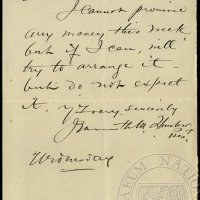 I cannot promise
any money this week
but if I can, will
try to arrange it -
but do not expect
it. Yours very sincerely
Wednesday